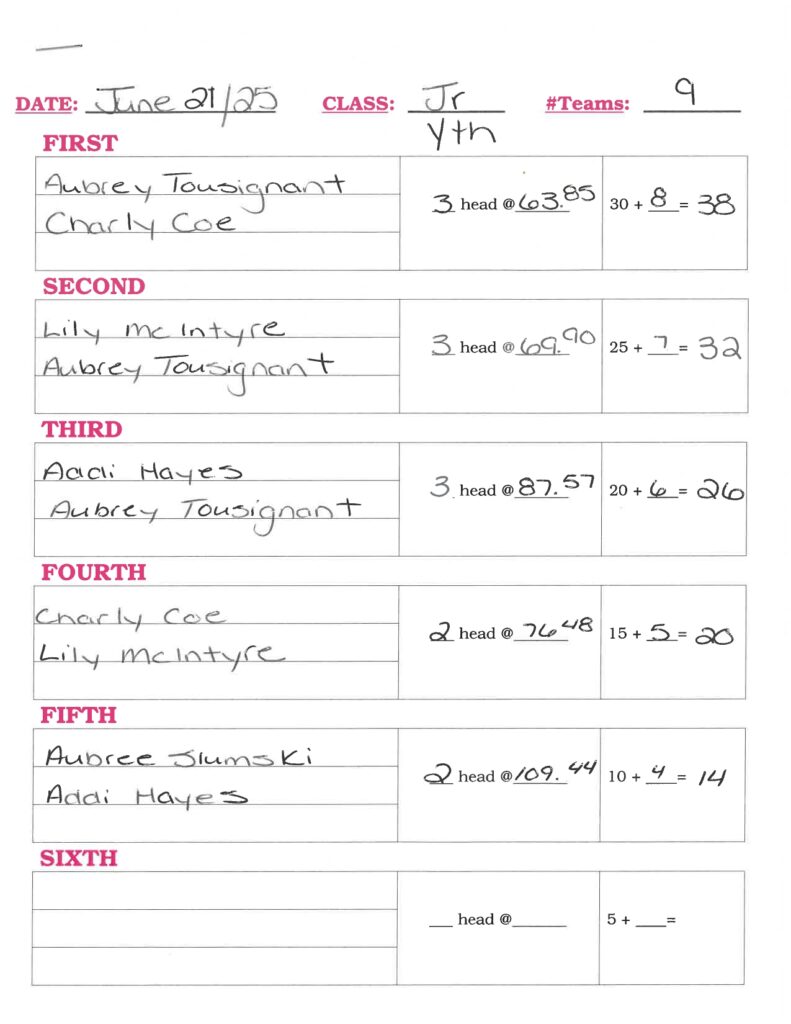 DATE: June 21/25 CLASS: Jr #Teams: 9
Yth
FIRST
Aubrey Tousignant
Charly Coe
3 head @ 63.85 30 + 8 = 38
SECOND
Lily McIntyre
Aubrey Tousignant
3 head @ 69.90 25 + 7 = 32
THIRD
Addi Hayes
Aubrey Tousignant
3 head @ 87.57 20 + 6 = 26
FOURTH
Charly Coe
Lily McIntyre
2 head @ 76.48 15 + 5 = 20
FIFTH
Aubree Slumski
Addi Hayes
2 head @ 109.44 10 + 4 = 14
SIXTH
__ head @ ______ 5 + ___=